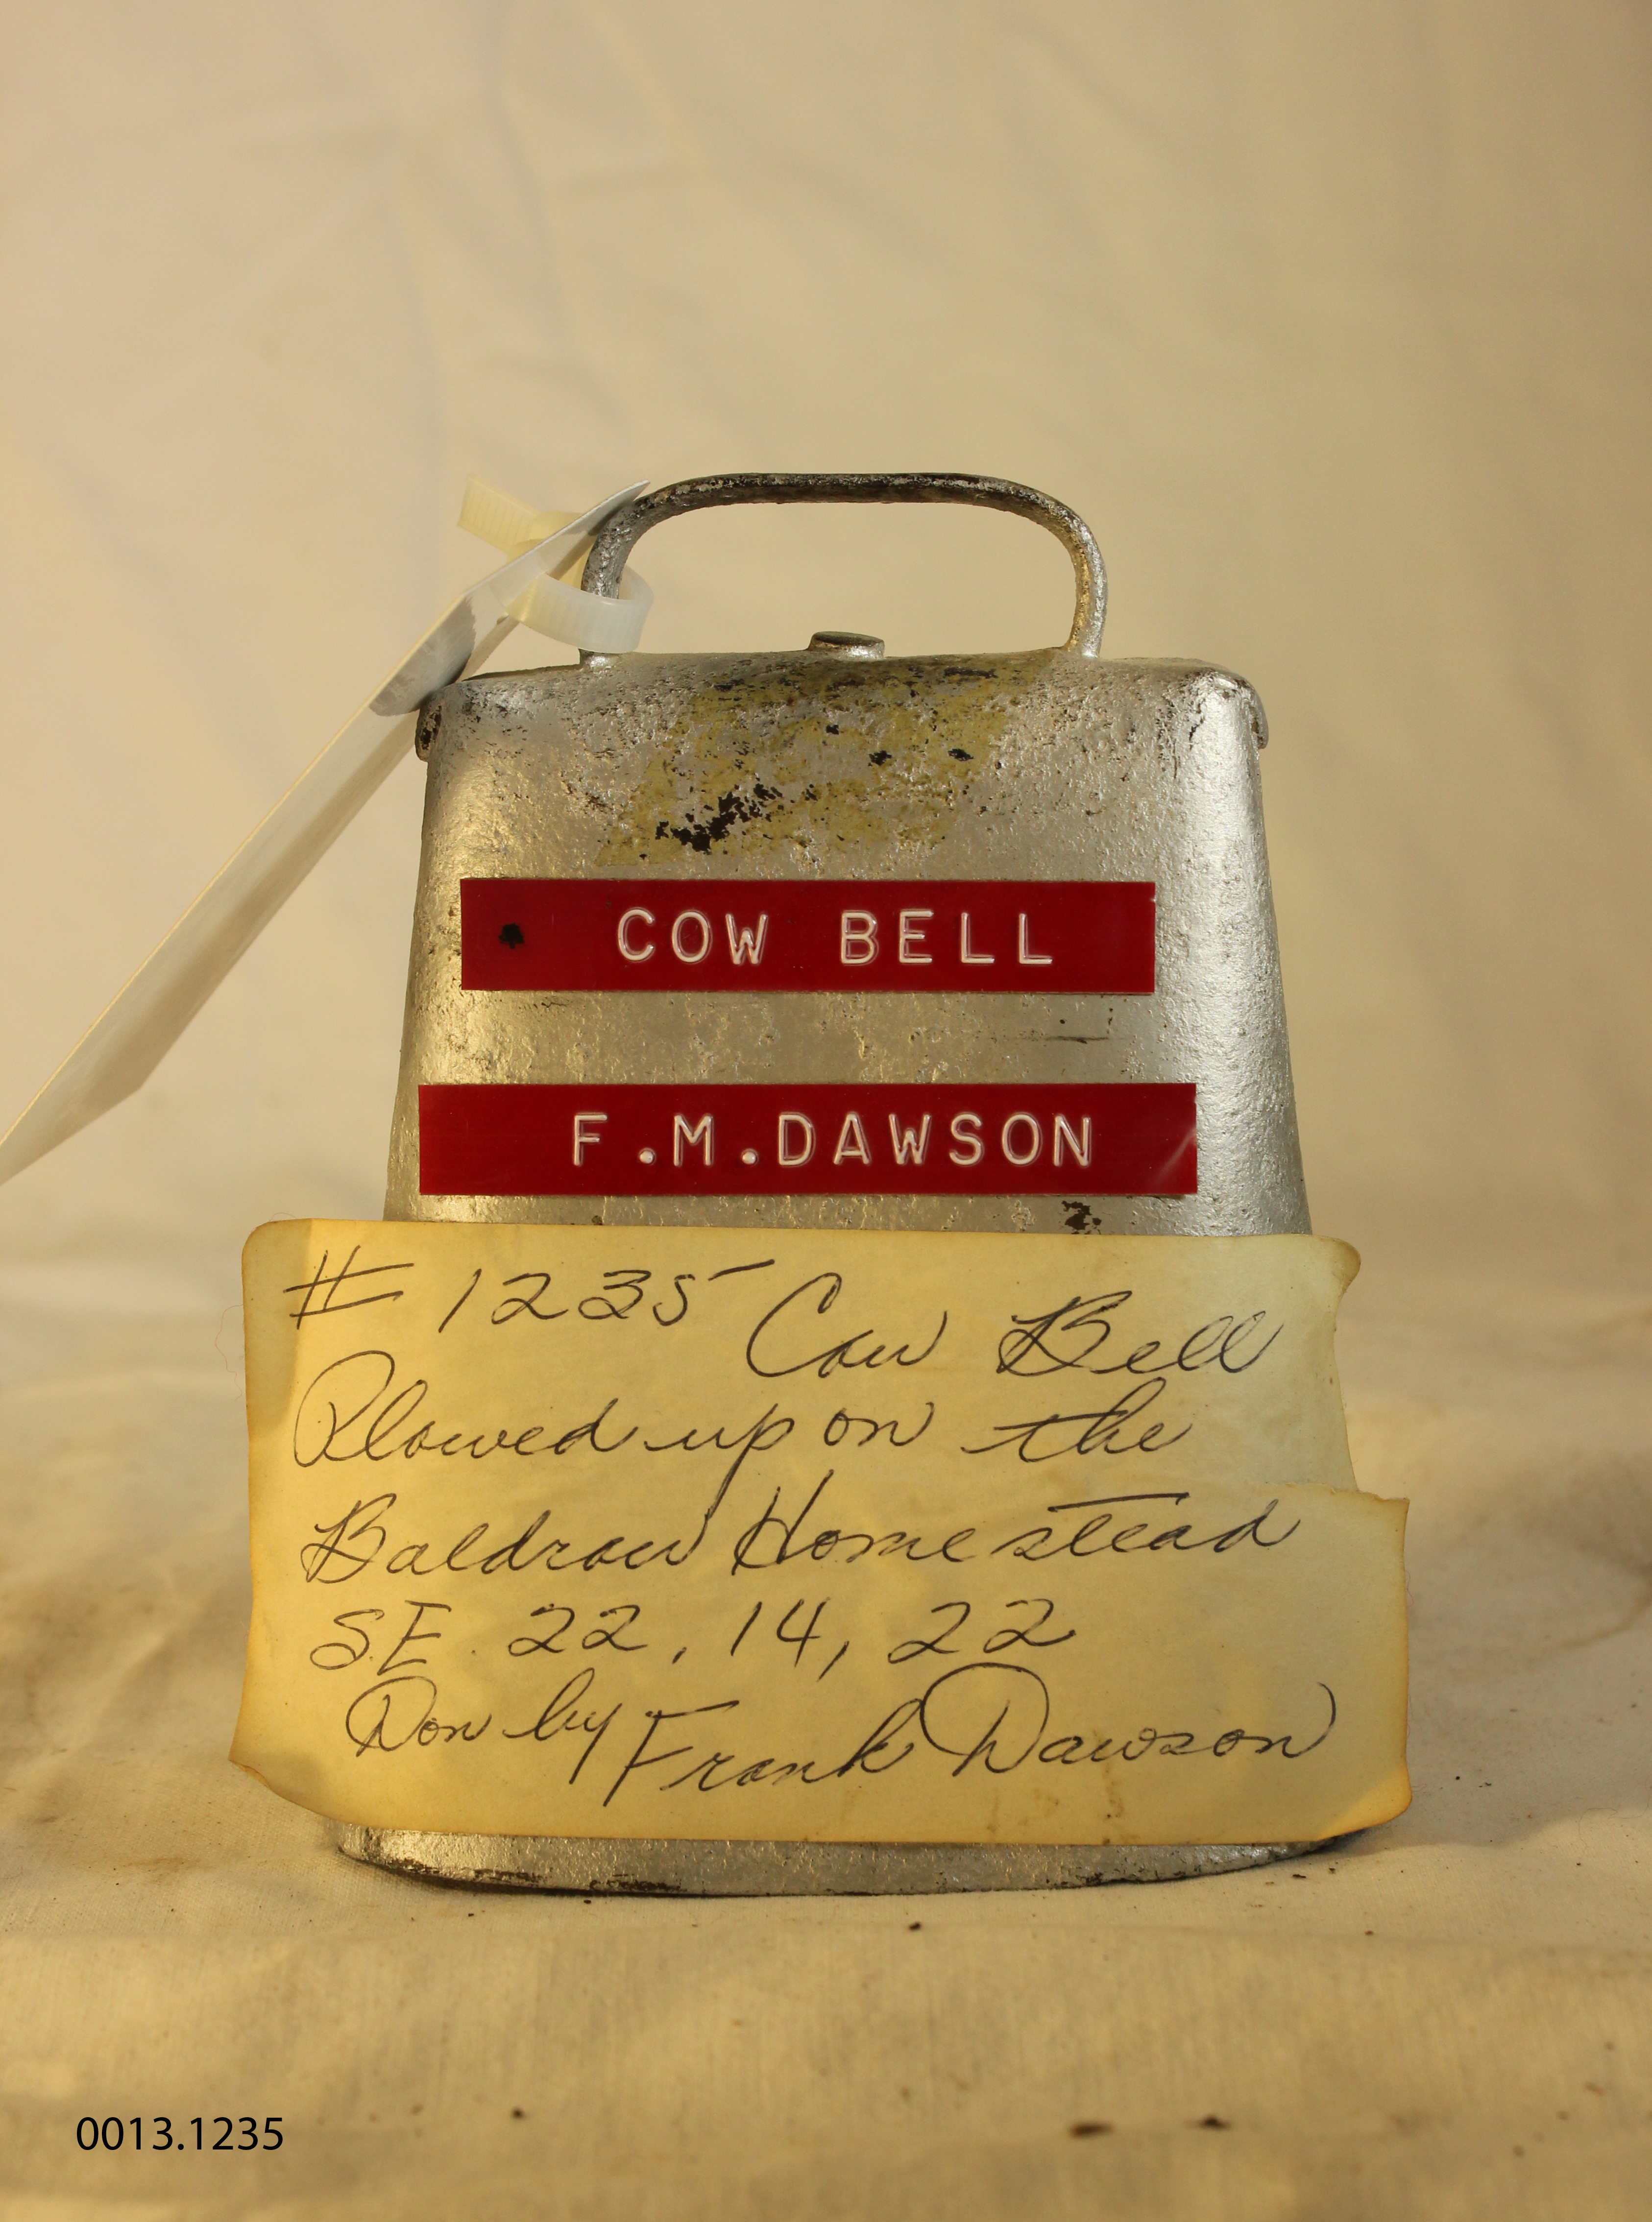 COW BELL
F.M.DAWSON
# 1235 Cow Bell
Plowed up on the
Baldraw Homestead
S.E. 22, 14, 22
Don by Frank Dawson
0013.1235